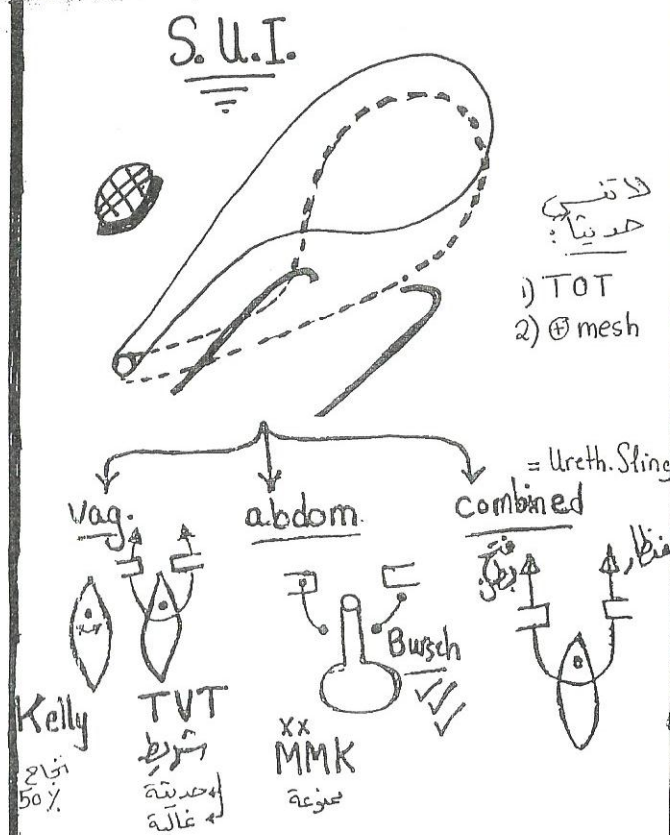 S.U.I.
لا تنسي
حديثا:
1) TOT
2) ⊕ mesh
= Ureth. Sling
Vag.
abdom.
combined
فتح
بطن
منظار
Bursch
Kelly
نجاح
50%
TVT
شريط
حديثة
غالية
xx
MMK
ممنوعة